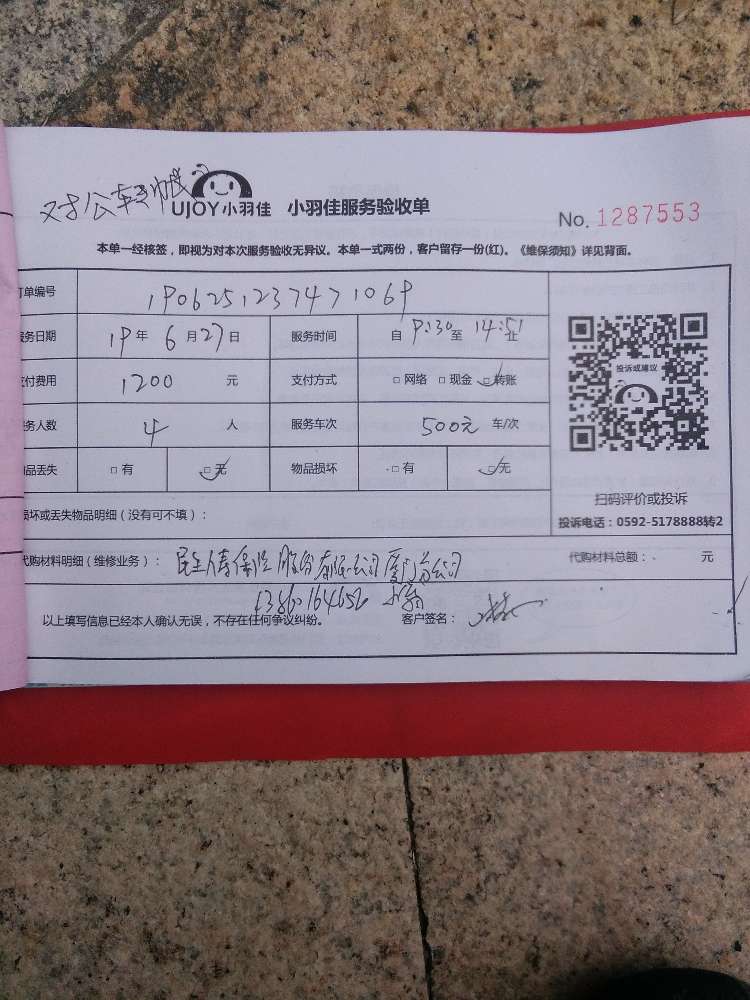 对公转帐
UJOY小羽佳 小羽佳服务验收单
No. 1287553
本单一经核签，即视为对本次服务验收无异议。本单一式两份，客户留存一份(红)。《维保须知》详见背面。
订单编号 1906251237471069
服务日期 19年 6月27日 服务时间 自 9:30至 14:51止
支付费用 1200 元 支付方式 □网络 □现金 ☑转账
服务人数 4 人 服务车次 500元 车/次
物品丢失 □有 ☑无 物品损坏 □有 ☑无
投诉或建议
扫码评价或投诉
投诉电话：0592-5178888转2
损坏或丢失物品明细（没有可不填）：
代购材料明细（维修业务）： 民生人寿保险股份有限公司厦门分公司 代购材料总额： 元
13860164652
以上填写信息已经本人确认无误，不存在任何争议纠纷。 客户签名：